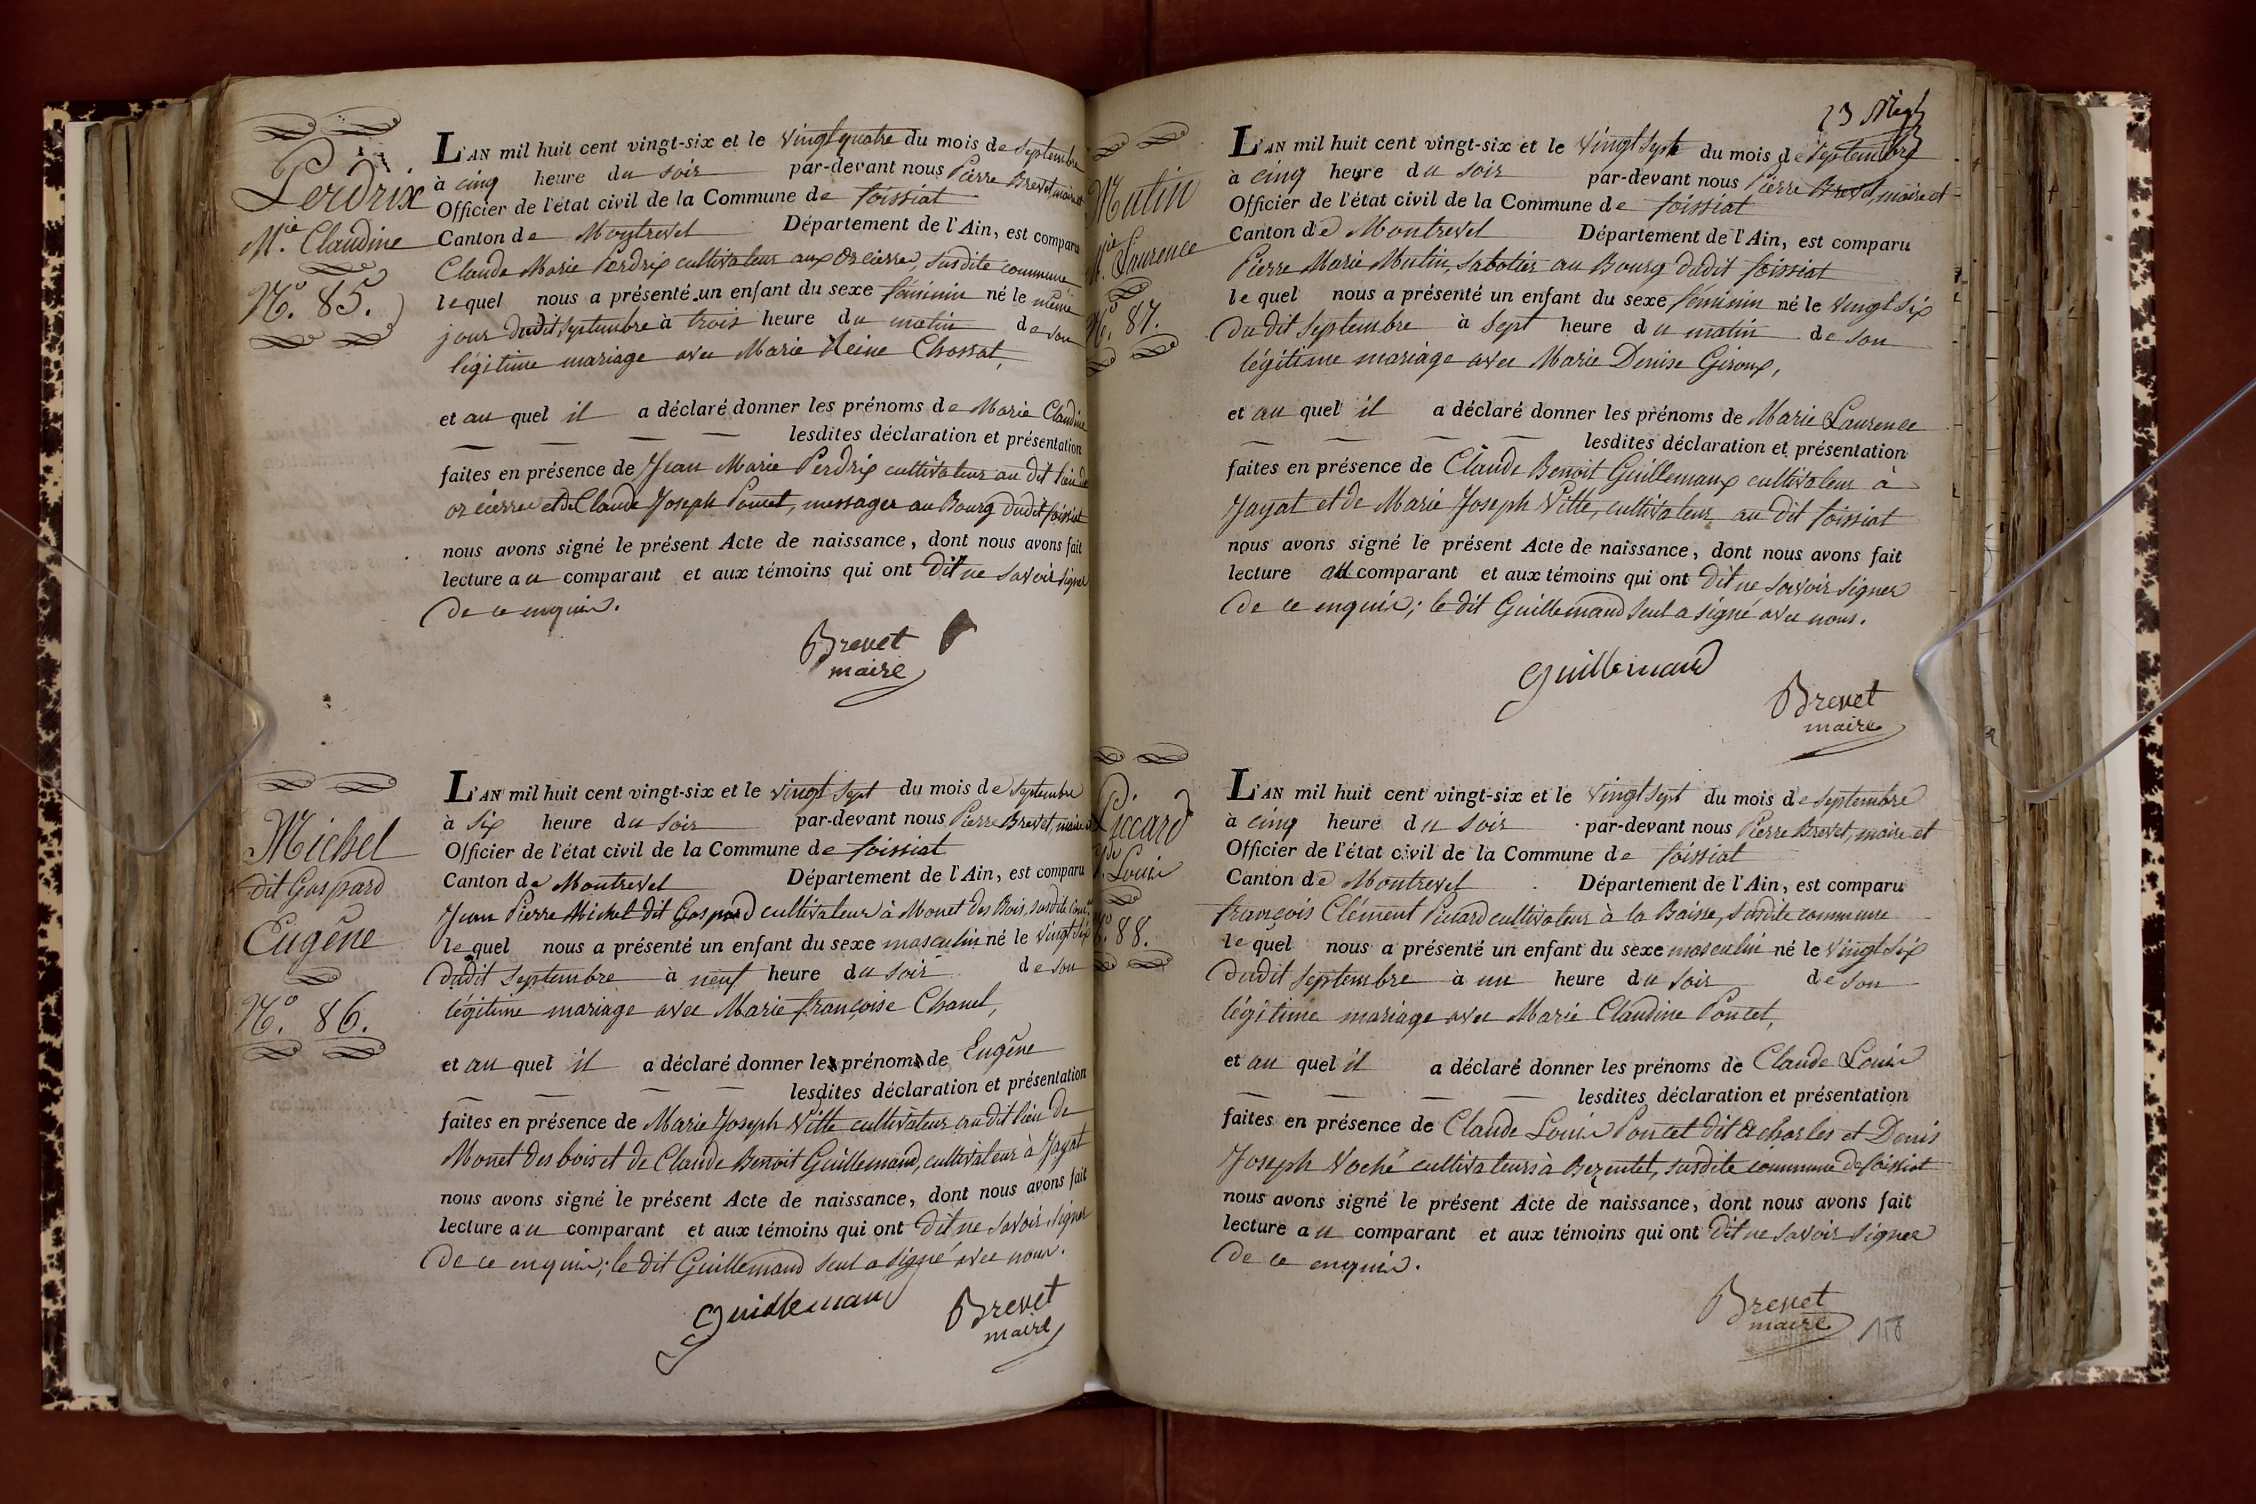 Perdrix
M.ie Claudine
N.o 85.
L'AN mil huit cent vingt-six et le vingt quatre du mois de septembre
à cinq heure du soir par-devant nous Pierre Brevet, maire et
Officier de l'état civil de la Commune de foissiat
Canton de Montrevel Département de l'Ain, est comparu
Claude Marie Perdrix cultivateur aux Orcières, susdite commune
lequel nous a présenté un enfant du sexe féminin né le même
jour dudit septembre à trois heure du matin de son
légitime mariage avec Marie Reine Chossat,
et au quel il a déclaré donner les prénoms de Marie Claudine
lesdites déclaration et présentation
faites en présence de Jean Marie Perdrix cultivateur au dit lieu de
orcières et de Claude Joseph Poncet, messager au Bourg dudit foissiat
nous avons signé le présent Acte de naissance, dont nous avons fait
lecture au comparant et aux témoins qui ont dit ne savoir signer
de ce enquis.
Brevet
maire
Michel
dit Gaspard
Eugêne
N.o 86.
L'AN mil huit cent vingt-six et le vingt sept du mois de septembre
à six heure du soir par-devant nous Pierre Brevet, maire et
Officier de l'état civil de la Commune de foissiat
Canton de Montrevel Département de l'Ain, est comparu
Jean Pierre Michel dit Gaspard cultivateur à Monet des Bois, susdite Comne
lequel nous a présenté un enfant du sexe masculin né le vingt six
dudit septembre à neuf heure du soir de son
légitime mariage avec Marie françoise Chanel,
et au quel il a déclaré donner les prénoms de Eugêne
lesdites déclaration et présentation
faites en présence de Marie Joseph Vitte cultivateur au dit lieu de
Monet des bois et de Claude Benoit Guillemaud, cultivateur à Jayat
nous avons signé le présent Acte de naissance, dont nous avons fait
lecture au comparant et aux témoins qui ont dit ne savoir signer
de ce enquis; le dit Guillemaud seul a signé avec nous.
Guillemaud
Brevet
maire
23
Mutin
M.ie Laurence
N.o 87.
L'AN mil huit cent vingt-six et le vingt sept du mois de septembre
à cinq heure du soir par-devant nous Pierre Brevet, maire et
Officier de l'état civil de la Commune de foissiat
Canton de Montrevel Département de l'Ain, est comparu
Pierre Marie Mutin, sabotier au Bourg dudit foissiat
lequel nous a présenté un enfant du sexe féminin né le vingt six
du dit septembre à sept heure du matin de son
légitime mariage avec Marie Denise Giroux,
et au quel il a déclaré donner les prénoms de Marie Laurence
lesdites déclaration et présentation
faites en présence de Claude Benoit Guillemaux cultivateur à
Jayat et de Marie Joseph Vitte, cultivateur au dit foissiat
nous avons signé le présent Acte de naissance, dont nous avons fait
lecture au comparant et aux témoins qui ont dit ne savoir signer
de ce enquis; le dit Guillemaud seul a signé avec nous.
Guillemaud
Brevet
maire
Piccard
Louis
N.o 88.
L'AN mil huit cent vingt-six et le vingt sept du mois de septembre
à cinq heure du soir par-devant nous Pierre Brevet, maire et
Officier de l'état civil de la Commune de foissiat
Canton de Montrevel Département de l'Ain, est comparu
françois Clément Picard cultivateur à la Baisse, susdite commune
lequel nous a présenté un enfant du sexe masculin né le vingt six
dudit septembre à un heure du soir de son
légitime mariage avec Marie Claudine Poncet,
et au quel il a déclaré donner les prénoms de Claude Louis
lesdites déclaration et présentation
faites en présence de Claude Louis Poncet dit charles et Denis
Joseph Voché cultivateurs à Bezentet, susdite commune de foissiat
nous avons signé le présent Acte de naissance, dont nous avons fait
lecture au comparant et aux témoins qui ont dit ne savoir signer
de ce enquis.
Brevet
maire
118